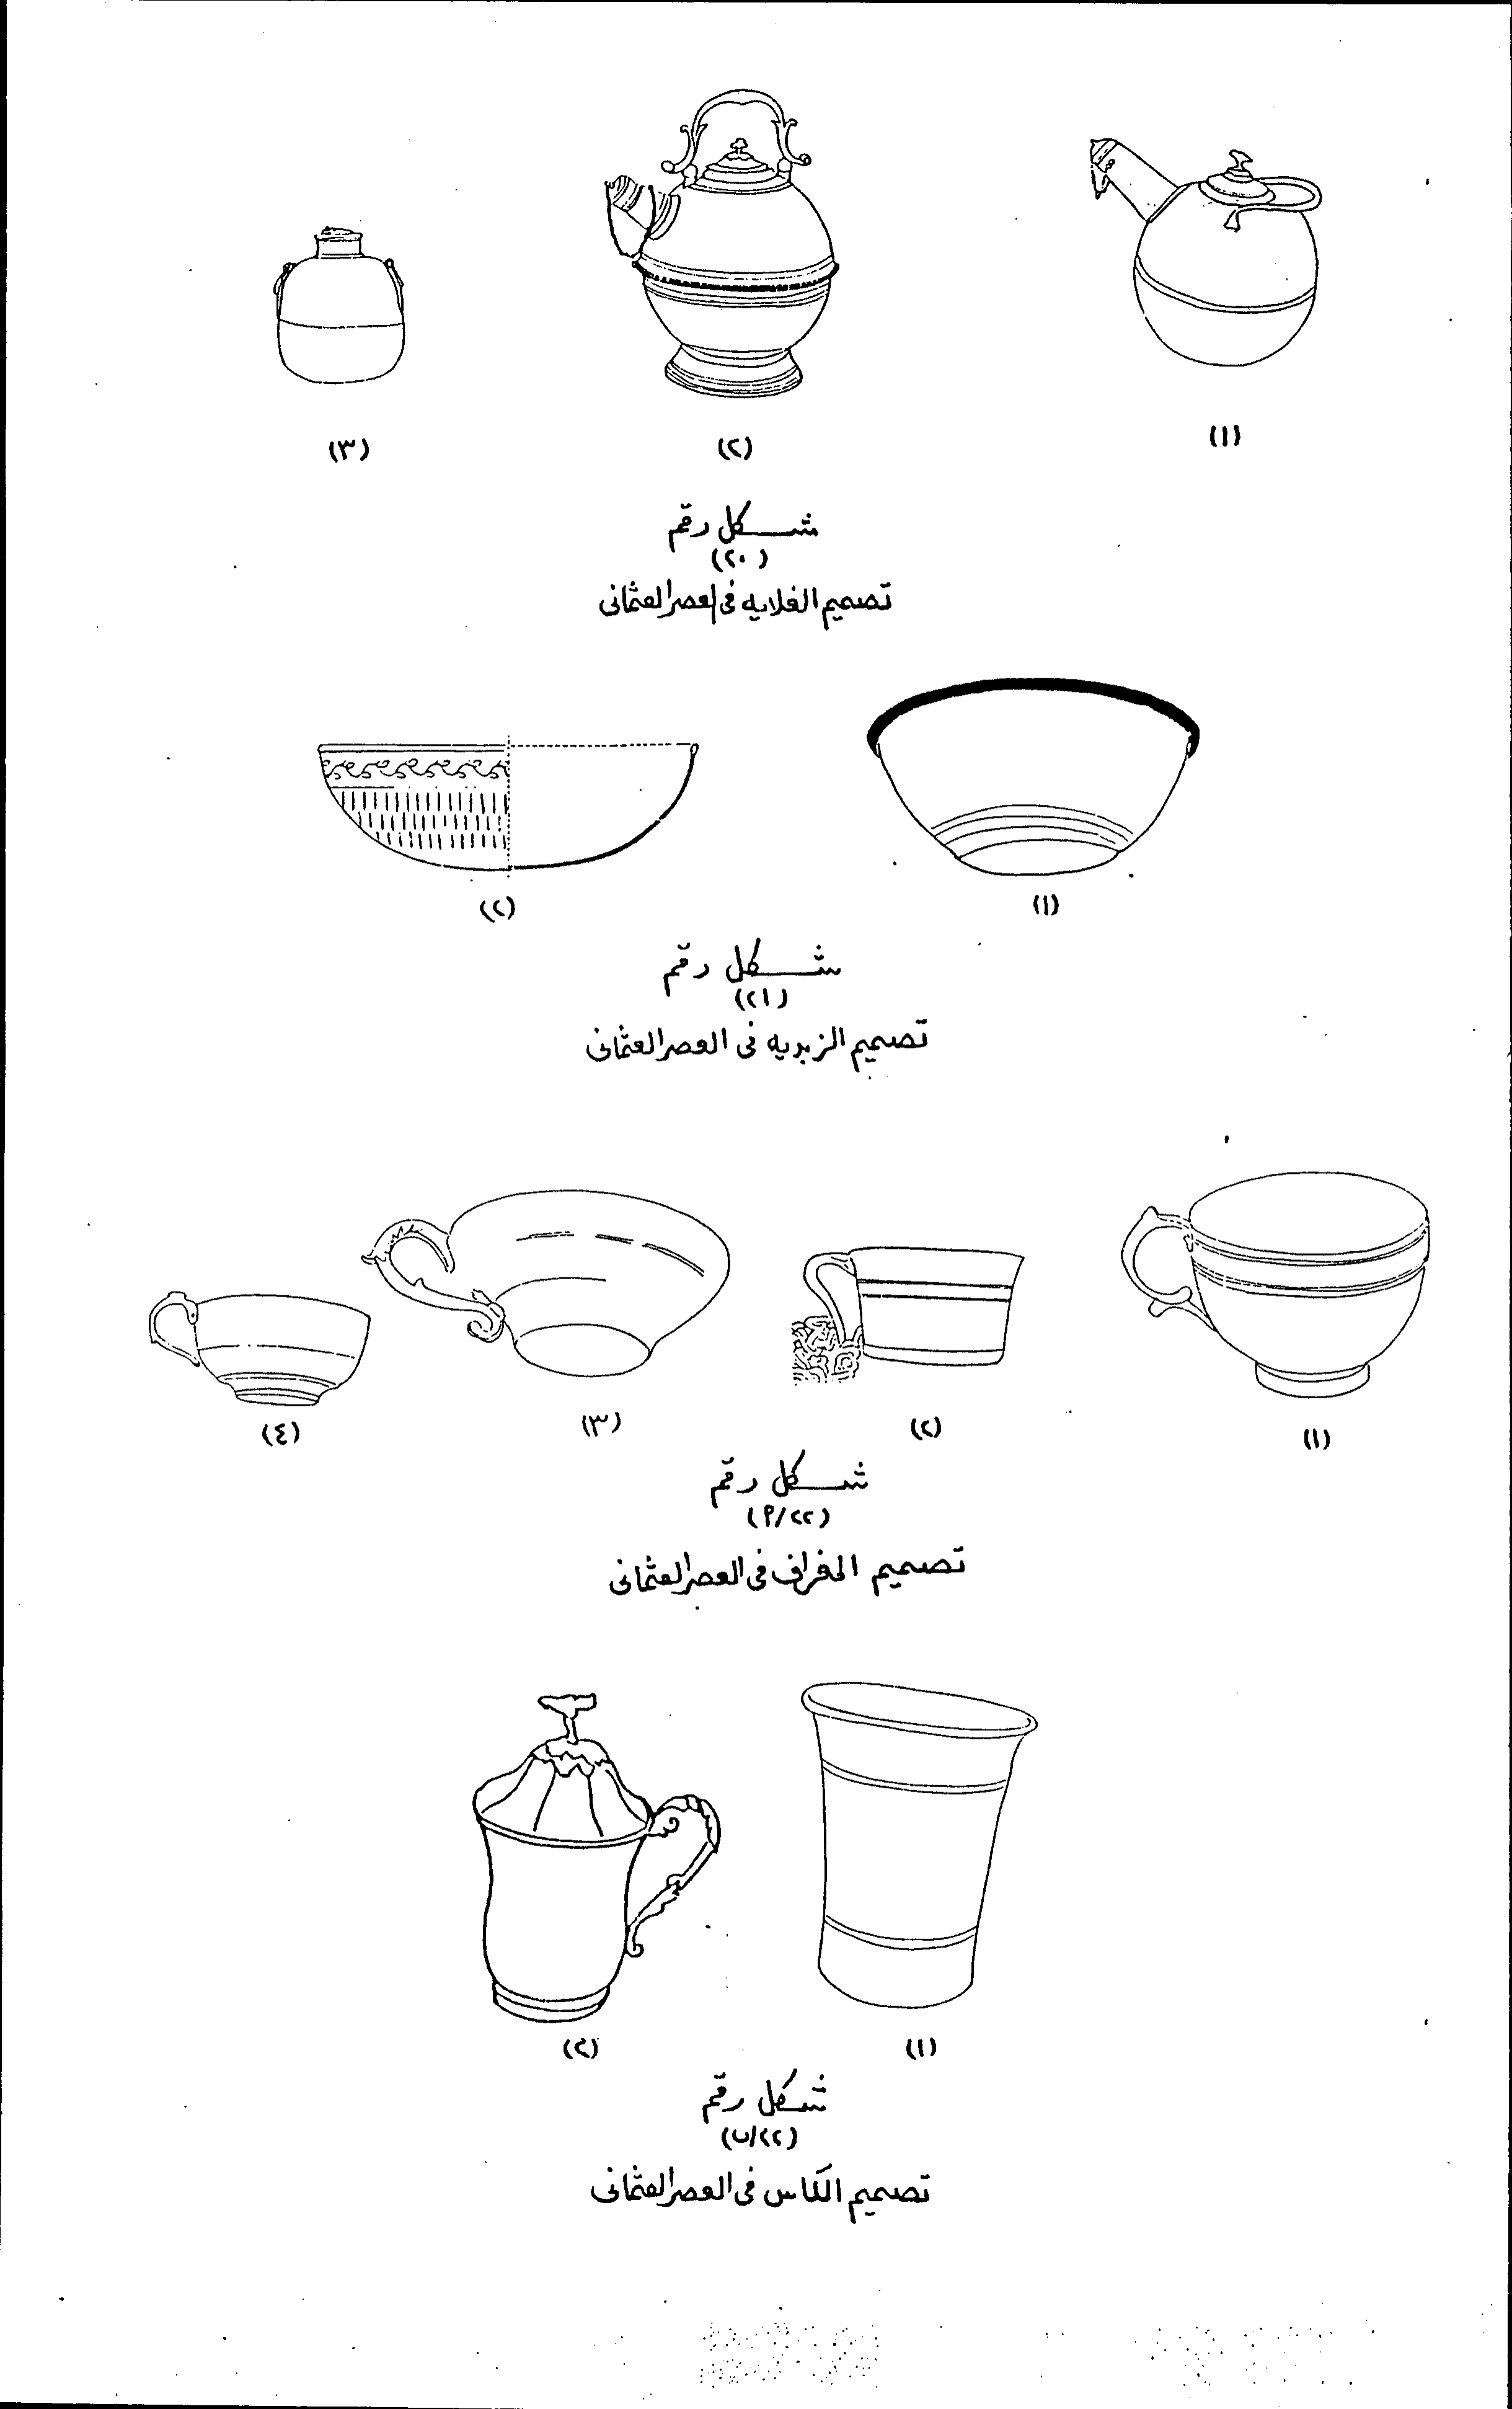 (١)
(٢)
(٣)
شكل رقم
(٢٠)
تصميم الغلايه فى العصر العثمانى
(١)
(٢)
شكل رقم
(٢١)
تصميم الزبديه فى العصر العثمانى
(١)
(٢)
(٣)
(٤)
شكل رقم
(٢٢/أ)
تصميم المغراف فى العصر العثمانى
(١)
(٢)
شكل رقم
(٢٢/ب)
تصميم الكاس فى العصر العثمانى